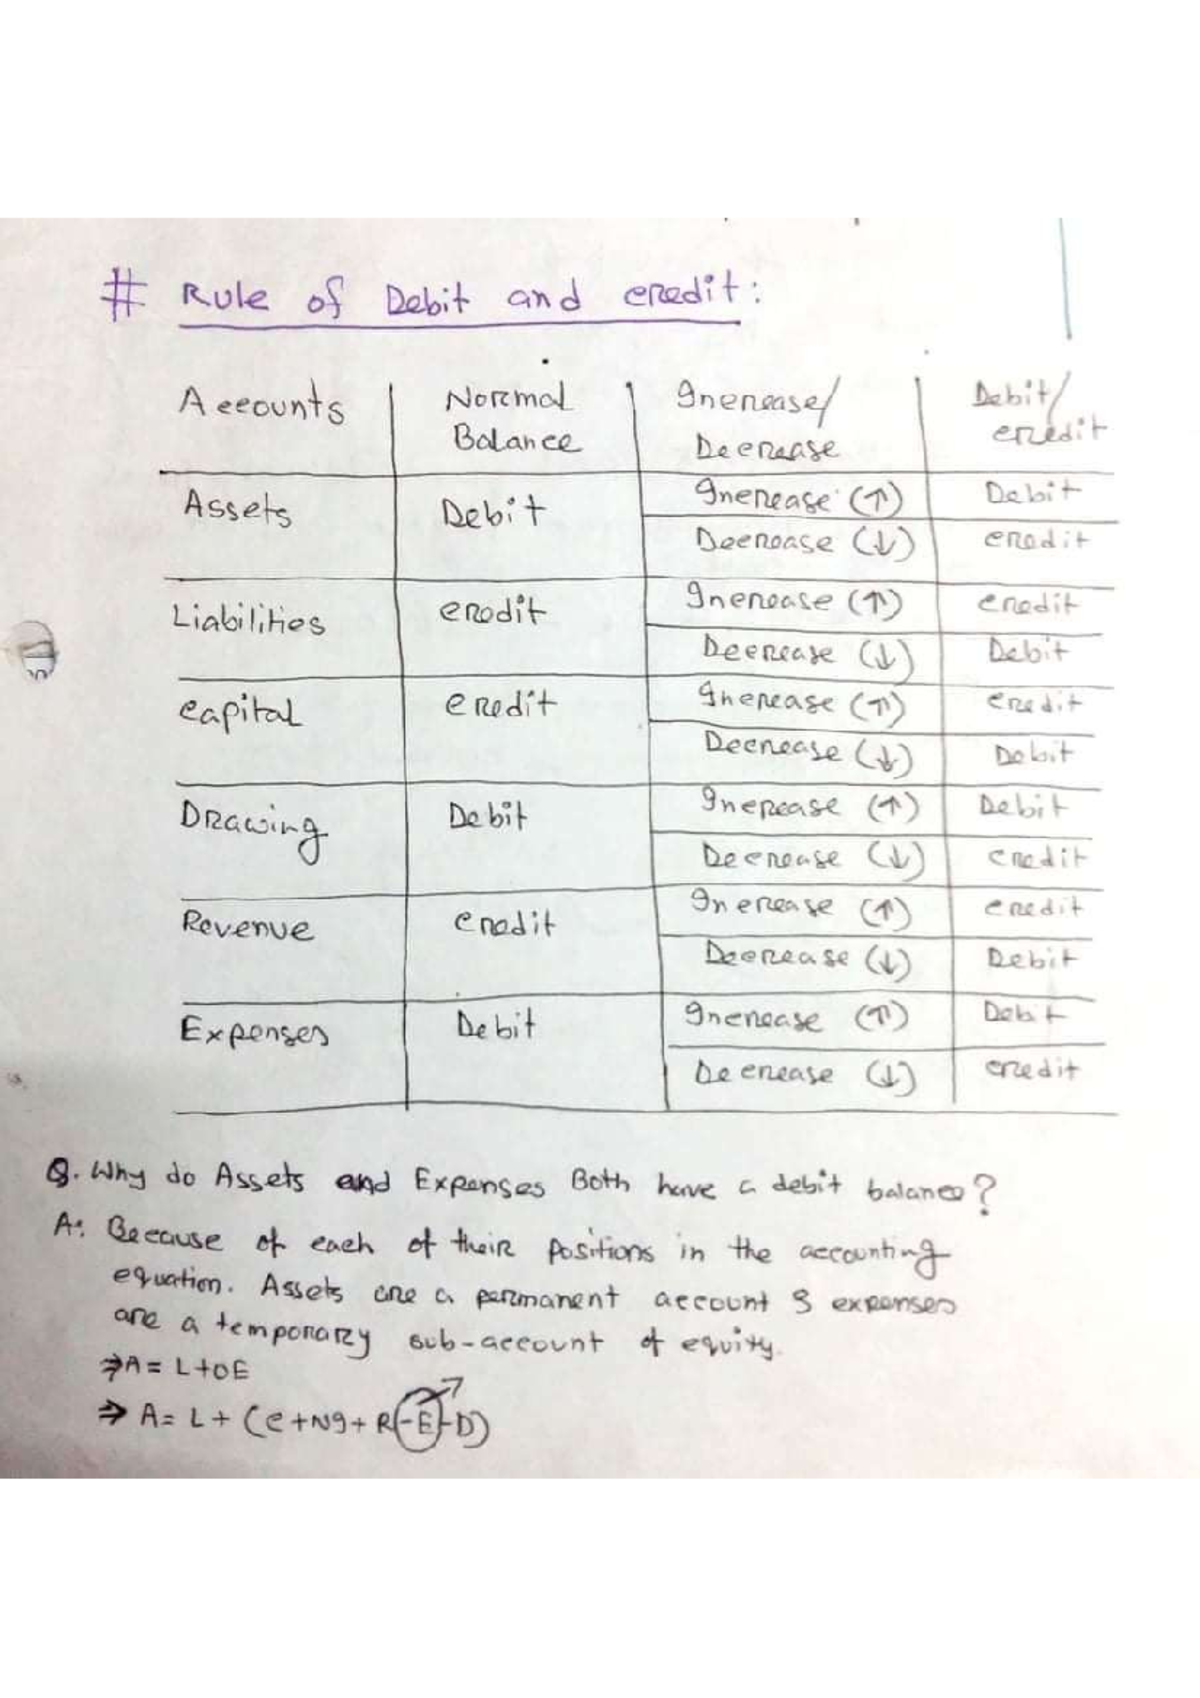 # Rule of Debit and credit:
Accounts | Normal Balance | Increase/ Decrease | Debit/ credit
Assets | Debit | Increase (↑) | Debit
Decrease (↓) | credit
Liabilities | credit | Increase (↑) | credit
Decrease (↓) | Debit
capital | credit | Increase (↑) | credit
Decrease (↓) | Debit
Drawing | Debit | Increase (↑) | Debit
Decrease (↓) | credit
Revenue | credit | Increase (↑) | credit
Decrease (↓) | Debit
Expenses | Debit | Increase (↑) | Debit
Decrease (↓) | credit
Q. Why do Assets and Expenses Both have a debit balance?
A: Because of each of their positions in the accounting
equation. Assets are a permanent account & expenses
are a temporary sub-account of equity.
⇒ A = L+OE
⇒ A = L + (C+NI+R-E-D)